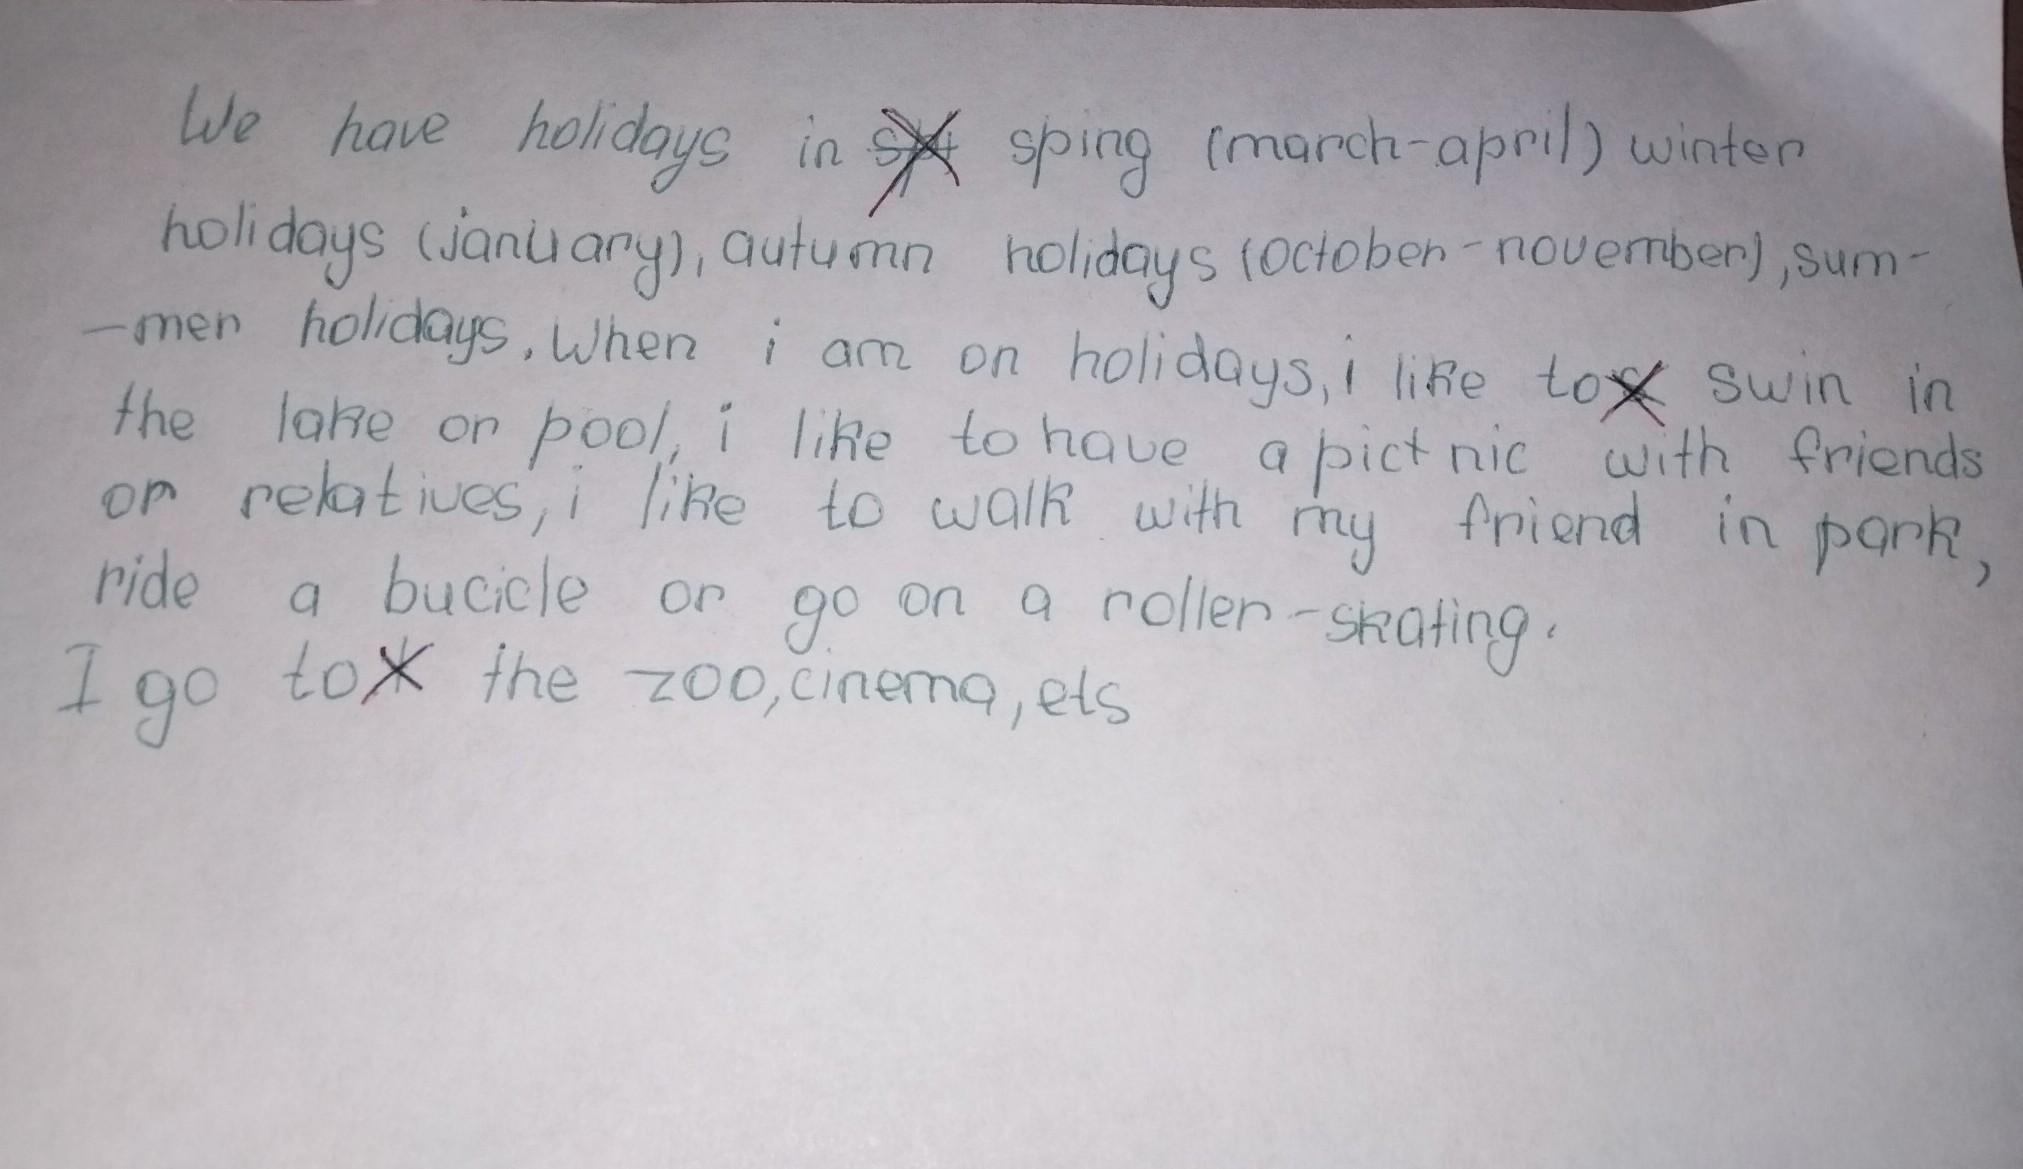 We have holidays in sping (march-april) winter
holidays (january), autumn holidays (october-november), sum-
-mer holidays. When i am on holidays, i like to swin in
the lake or pool, i like to have a pictnic with friends
or relatives, i like to walk with my friend in park,
ride a bucicle or go on a roller-skating.
I go to the zoo, cinema, ets